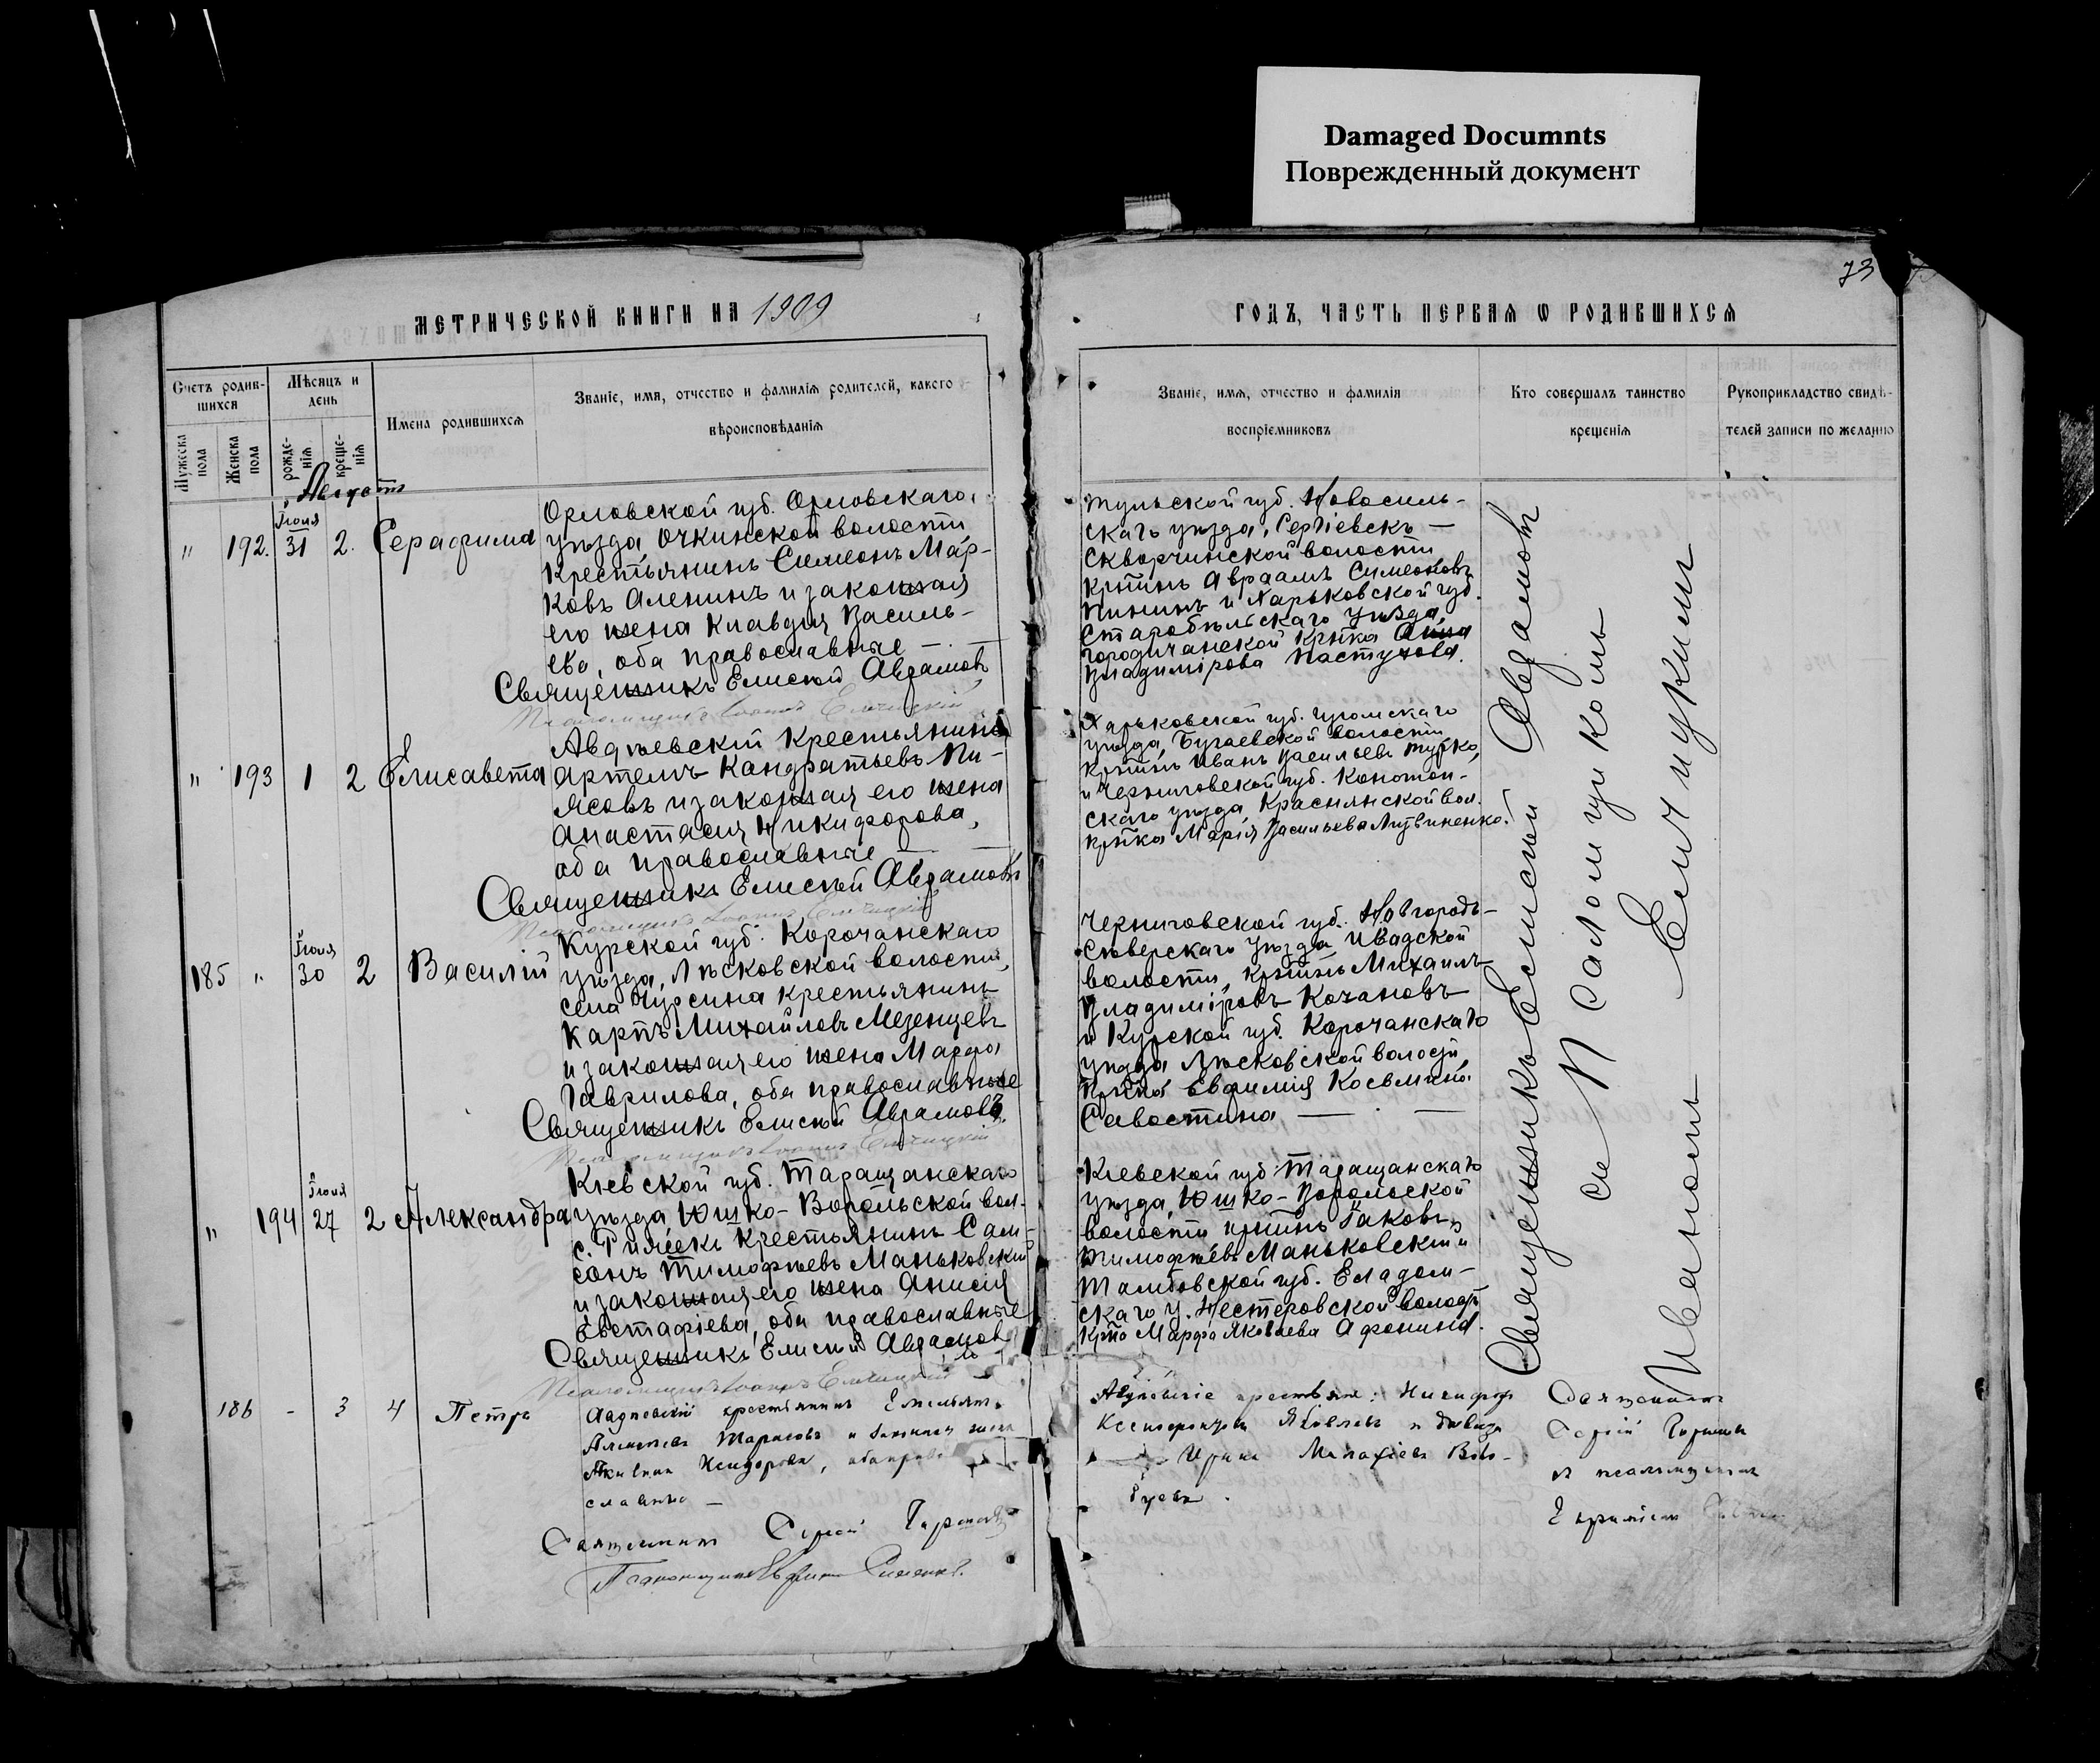 Damaged Documnts
Поврежденный документ
73
МЕТРИЧЕСКОЙ КНИГИ НА 1909
ГОДЪ, ЧАСТЬ ПЕРВАЯ Ѡ РОДИВШИХСЯ
Счетъ родив-
шихся
Мѣсяцъ и
день
Имена родившихся
Званіе, имя, отчество и фамилія родителей, какого
вѣроисповѣданія
Мужеска пола
Женска пола
рожде-
нія
креще-
нія
Званіе, имя, отчество и фамилія
воспріемниковъ
Кто совершалъ таинство
крещенія
Рукоприкладство свидѣ-
телей записи по желанію
Августъ
" 192. Іюля 31 2. Серафима
Орловской губ. Орловскаго
уѣзда, Очкинской волости
крестьянинъ Симеонъ Мар-
ковъ Аленинъ и законная
его жена Клавдія Василь-
ева, оба православные —
Священникъ Елисей Авдамовъ
Псаломщикъ Іоаннъ
Тульской губ. Новосиль-
скаго уѣзда, Сергіевскъ —
Скворчинской волости
кр̃тинъ Авраамъ Симеоновъ
Пининъ и Харьковской губ.
Старобѣльскаго уѣзда,
городчанской кр̃тка Анна
Владимірова Пастухова.
" 193 1 2 Елисавета
Авдѣевскій крестьянинъ
Артемъ Кандратьевъ Пи-
лсовъ и законная его жена
Анастасія Никифорова,
оба православные —
Священникъ Елисей Авдамовъ
Псаломщикъ Іоаннъ
Харьковской губ.
уѣзда, Бугаевской волости
кр̃тинъ Иванъ Васильевъ
и Черниговской губ. Конотоп-
скаго уѣзда, Краснянской вол.
кр̃тка Марія Васильева Литвиненко.
185 " Іюля 30 2 Василій
Курской губ. Корочанскаго
уѣзда, Лѣсковской волости,
села Чурсина крестьянинъ
Карпъ Михайловъ Мезенцевъ
и законная его жена Марфа
Гаврилова, оба православные
Священникъ Елисей Авдамовъ
Псаломщикъ Іоаннъ
Черниговской губ. Новгородъ-
сѣверскаго уѣзда, Ивадской
волости, кр̃тинъ Михаилъ
Владиміровъ Кочановъ
и Курской губ. Корочанскаго
уѣзда Лѣсковской волости,
кр̃тка Евфимія Косьмина
Савостина —
" 194 Іюля 27 2 Александра
Кіевской губ. Таращанскаго
уѣзда, Юшко-Рогольской вол.
с. крестьянинъ Сам-
сонъ Тимофѣевъ Маньковскій
и законная его жена Анисія
Евстафіева, оба православные
Священникъ Елисей Авдамовъ
Псаломщикъ Іоаннъ
Кіевской губ. Таращанскаго
уѣзда, Юшко-Рогольской
волости кр̃тинъ Іаковъ
Тимофѣевъ Маньковскій и
Тамбовской губ. Еладом-
скаго у. Нестеровской волости
кр̃тка Марфа Яковлева Афонина.
Священникъ Елисей Авдамовъ
съ Псаломщикомъ
Иваномъ
186 - 3 4 Петръ
Авдѣевскій крестьянинъ Емельянъ
Тарасовъ и законная жена
Акилина Исидорова, оба право-
славные —
Священникъ Сергій
Псаломщикъ
Авдѣевскіе крестьяне: Никифоръ
Ксенофонтовъ Яковлевъ и дѣвица
Ирина
Священникъ
Сергій
и псаломщикъ